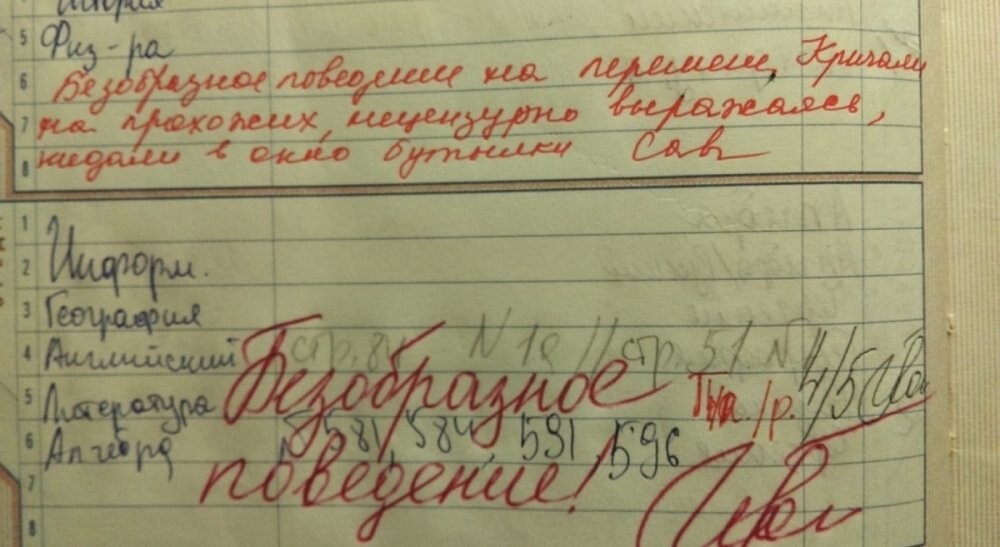 История
5 Физ-ра
6 Безобразное поведение на перемен, Кричали
7 на прохожих, нецензурно выражаясь,
8 кидали в окно бутылки Сав
1
2 Информ.
3 География
4 Английский стр. 84 N 18 // стр. 51 N
5 Литература Безобразное 4/5
6 Алгебра 581, 584, 591, 596
7 поведение!
8